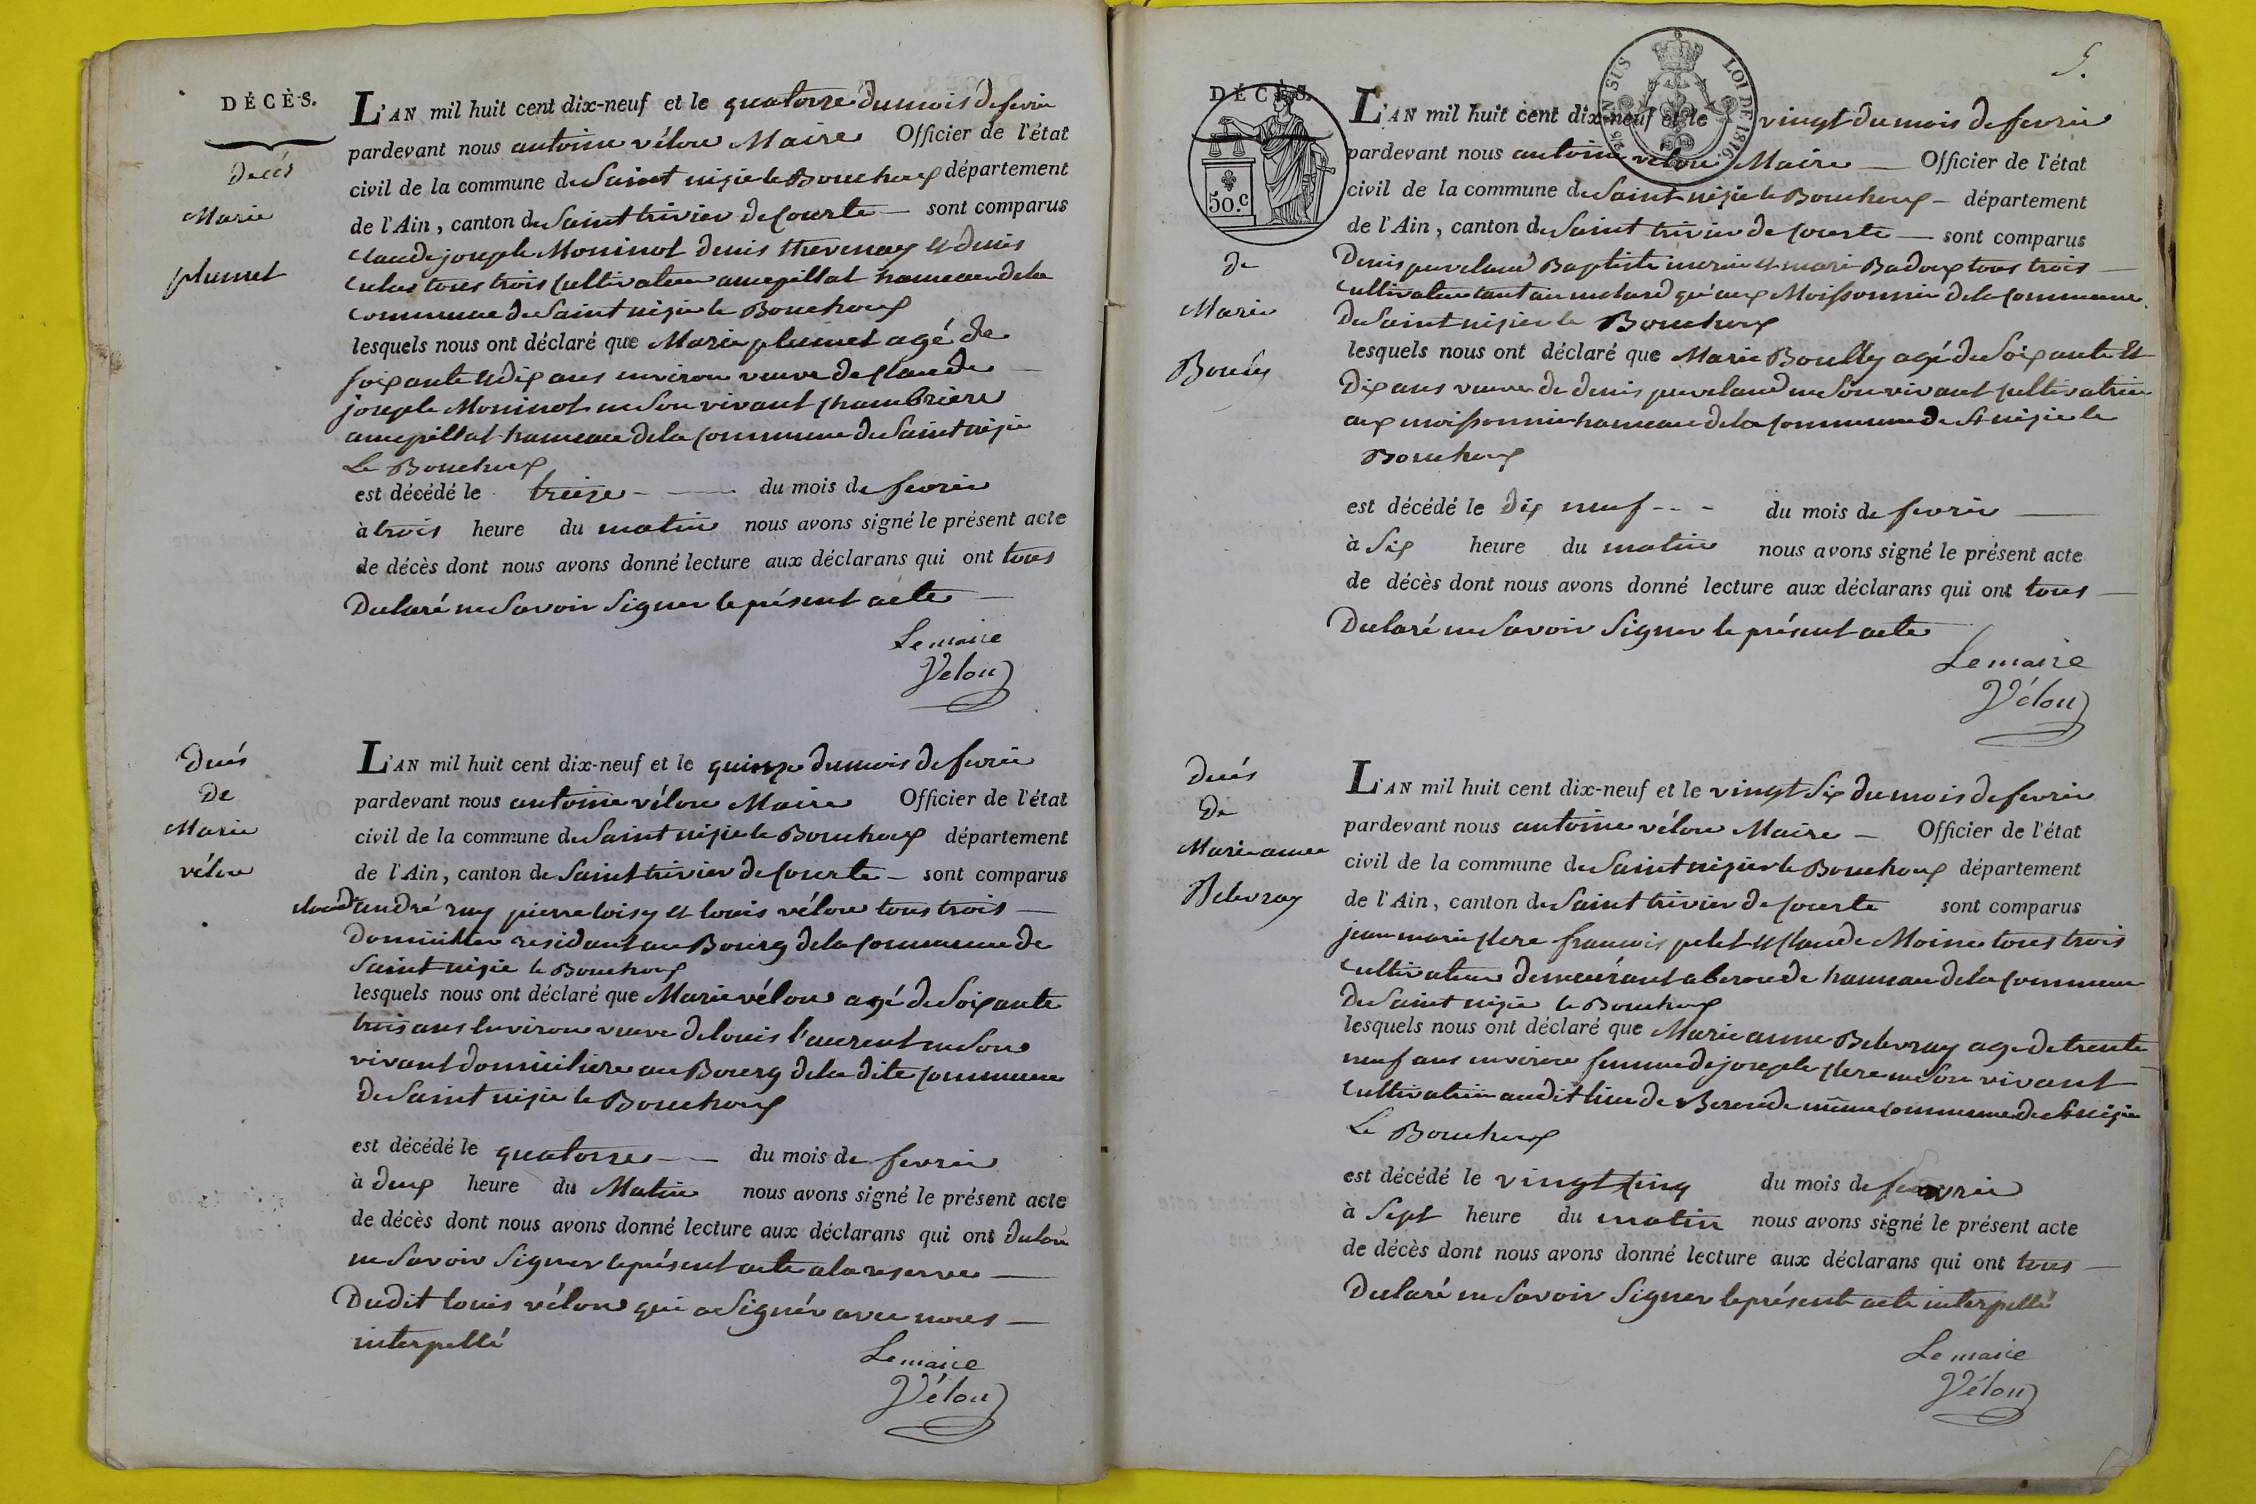 DÉCÈS.
Décés
Marie
plumet
L'AN mil huit cent dix-neuf et le quatorze du mois de fevrier
pardevant nous antoine vélon Maire Officier de l'état
civil de la commune de Saint nizier le Bouchoux département
de l'Ain, canton de Saint trivier de Courte — sont comparus
Claude joseph Moninot denis thevenay et denis
tous trois Cultivateur au pillat hameau de la
Commune de Saint nizier le Bouchoux
lesquels nous ont déclaré que Marie plumet agé de
soixante et dix ans environ veuve de Claude
joseph Moninot en son vivant Chambriere
au pillat hameau de la Commune de Saint nizier
Le Bouchoux
est décédé le treize du mois de fevrier
à trois heure du matin nous avons signé le présent acte
de décès dont nous avons donné lecture aux déclarans qui ont tous
Declaré ne Savoir Signer le présent acte
Le maire
Vélon
Decés
De
Marie
vélon
L'AN mil huit cent dix-neuf et le quinze du mois de fevrier
pardevant nous antoine vélon Maire Officier de l'état
civil de la commune de Saint nizier le Bouchoux département
de l'Ain, canton de Saint trivier de Courte — sont comparus
andré ruy pierre loisy et louis vélon tous trois
Domicilier residant au Bourg de la Commune de
Saint nizier le Bouchoux
lesquels nous ont déclaré que Marie vélon agé de Soixante
trois ans Environ veuve de louis l'aurent en Son
vivant domiciliere au Bourg de la dite Commune
De Saint nizier le Bouchoux
est décédé le quatorze du mois de fevrier
à deux heure du Matin nous avons signé le présent acte
de décès dont nous avons donné lecture aux déclarans qui ont
ne Savoir Signer le présent acte a la reserve
Dudit louis vélon qui a Signér avec nous
interpellé
Le maire
Vélon
5.
DÉCÈS.
50.C
EN SUS
LOI DE 1816.
de
Marie
L'AN mil huit cent dix-neuf et le vingt du mois de fevrier
pardevant nous antoine vélon Maire — Officier de l'état
civil de la commune de Saint nizier le Bouchoux — département
de l'Ain, canton de Saint trivier de Courte — sont comparus
Denis Baptiste et Badoux tous trois
Cultivateur tant au molard qu'aux Moissonnier de la Commune
De Saint nizier le Bouchoux
lesquels nous ont déclaré que Marie Boully agé de Soixante Et
Dix ans veuve de denis en Son vivant Cultivatrice
aux moissonnier hameau de la Commune de St nizier le
Bouchoux
est décédé le Dix neuf du mois de fevrier
à Six heure du matin nous avons signé le présent acte
de décès dont nous avons donné lecture aux déclarans qui ont tous
Declaré ne Savoir Signer le présent acte
Le maire
Vélon
Decés
De
Marie anne
Belevray
L'AN mil huit cent dix-neuf et le vingt Six du mois de fevrier
pardevant nous antoine vélon Maire — Officier de l'état
civil de la commune de Saint nizier le Bouchoux département
de l'Ain, canton de Saint trivier de Courte sont comparus
jean marie Clere francois petet et Claude Moine tous trois
Cultivateur demeurant a hameau de la Commune
De Saint nizier le Bouchoux
lesquels nous ont déclaré que Marie anne Belevray agé de trente
neuf ans environ femme de joseph Clere en Son vivant
Cultivatrice audit lieu de même Commune de St nizier
Le Bouchoux
est décédé le vingt Cinq du mois de fevrier
à Sept heure du matin nous avons signé le présent acte
de décès dont nous avons donné lecture aux déclarans qui ont tous
Declaré ne Savoir Signer le présent acte interpellé
Le maire
Vélon